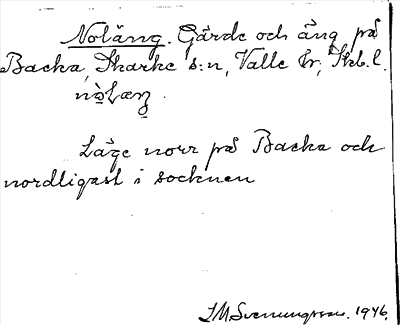 Noläng. Gärde och äng på
Backa, Skarke s:n, Valle hr, Skb. l.
Läge norr på Backa och
nordligast i socknen
S M Svenungsson. 1946.